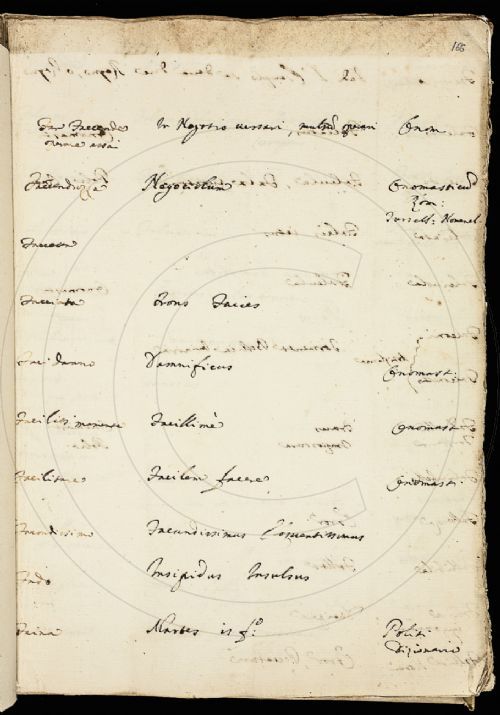 166
Far Facendes In Negotio versari, Onom.
Facenduzza Negotiolum Onomasticum
Rom:
Facciata Frons Facies
Facidanno Damnificus
Onomast:
Facilissimamente Facillimè Onomast:
Facilitare Facilem facere Onomast:
Facondissimo Facundissimus Eloquentissimus
Fado Insipidus Insulsus
Faina Martes is f:
Politi
Dizionario